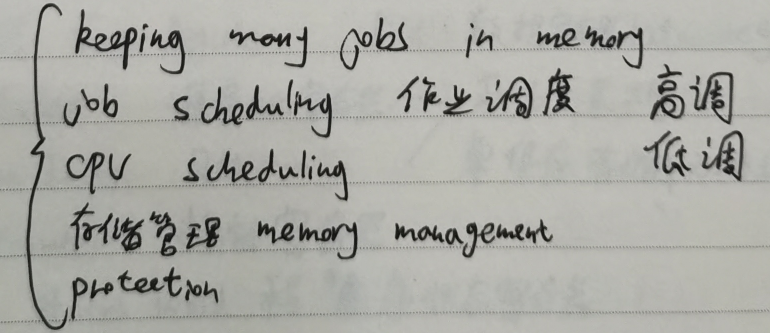 keeping many jobs in memory
job scheduling 作业调度 高调
CPU scheduling 低调
存储管理 memory management
protection